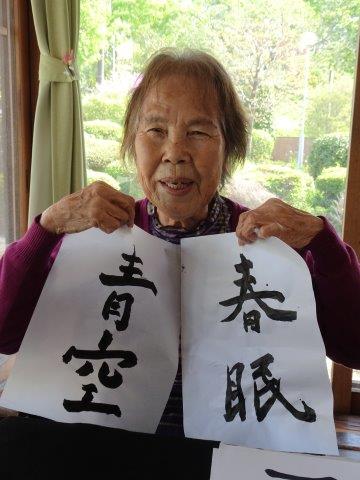 青空
春眠